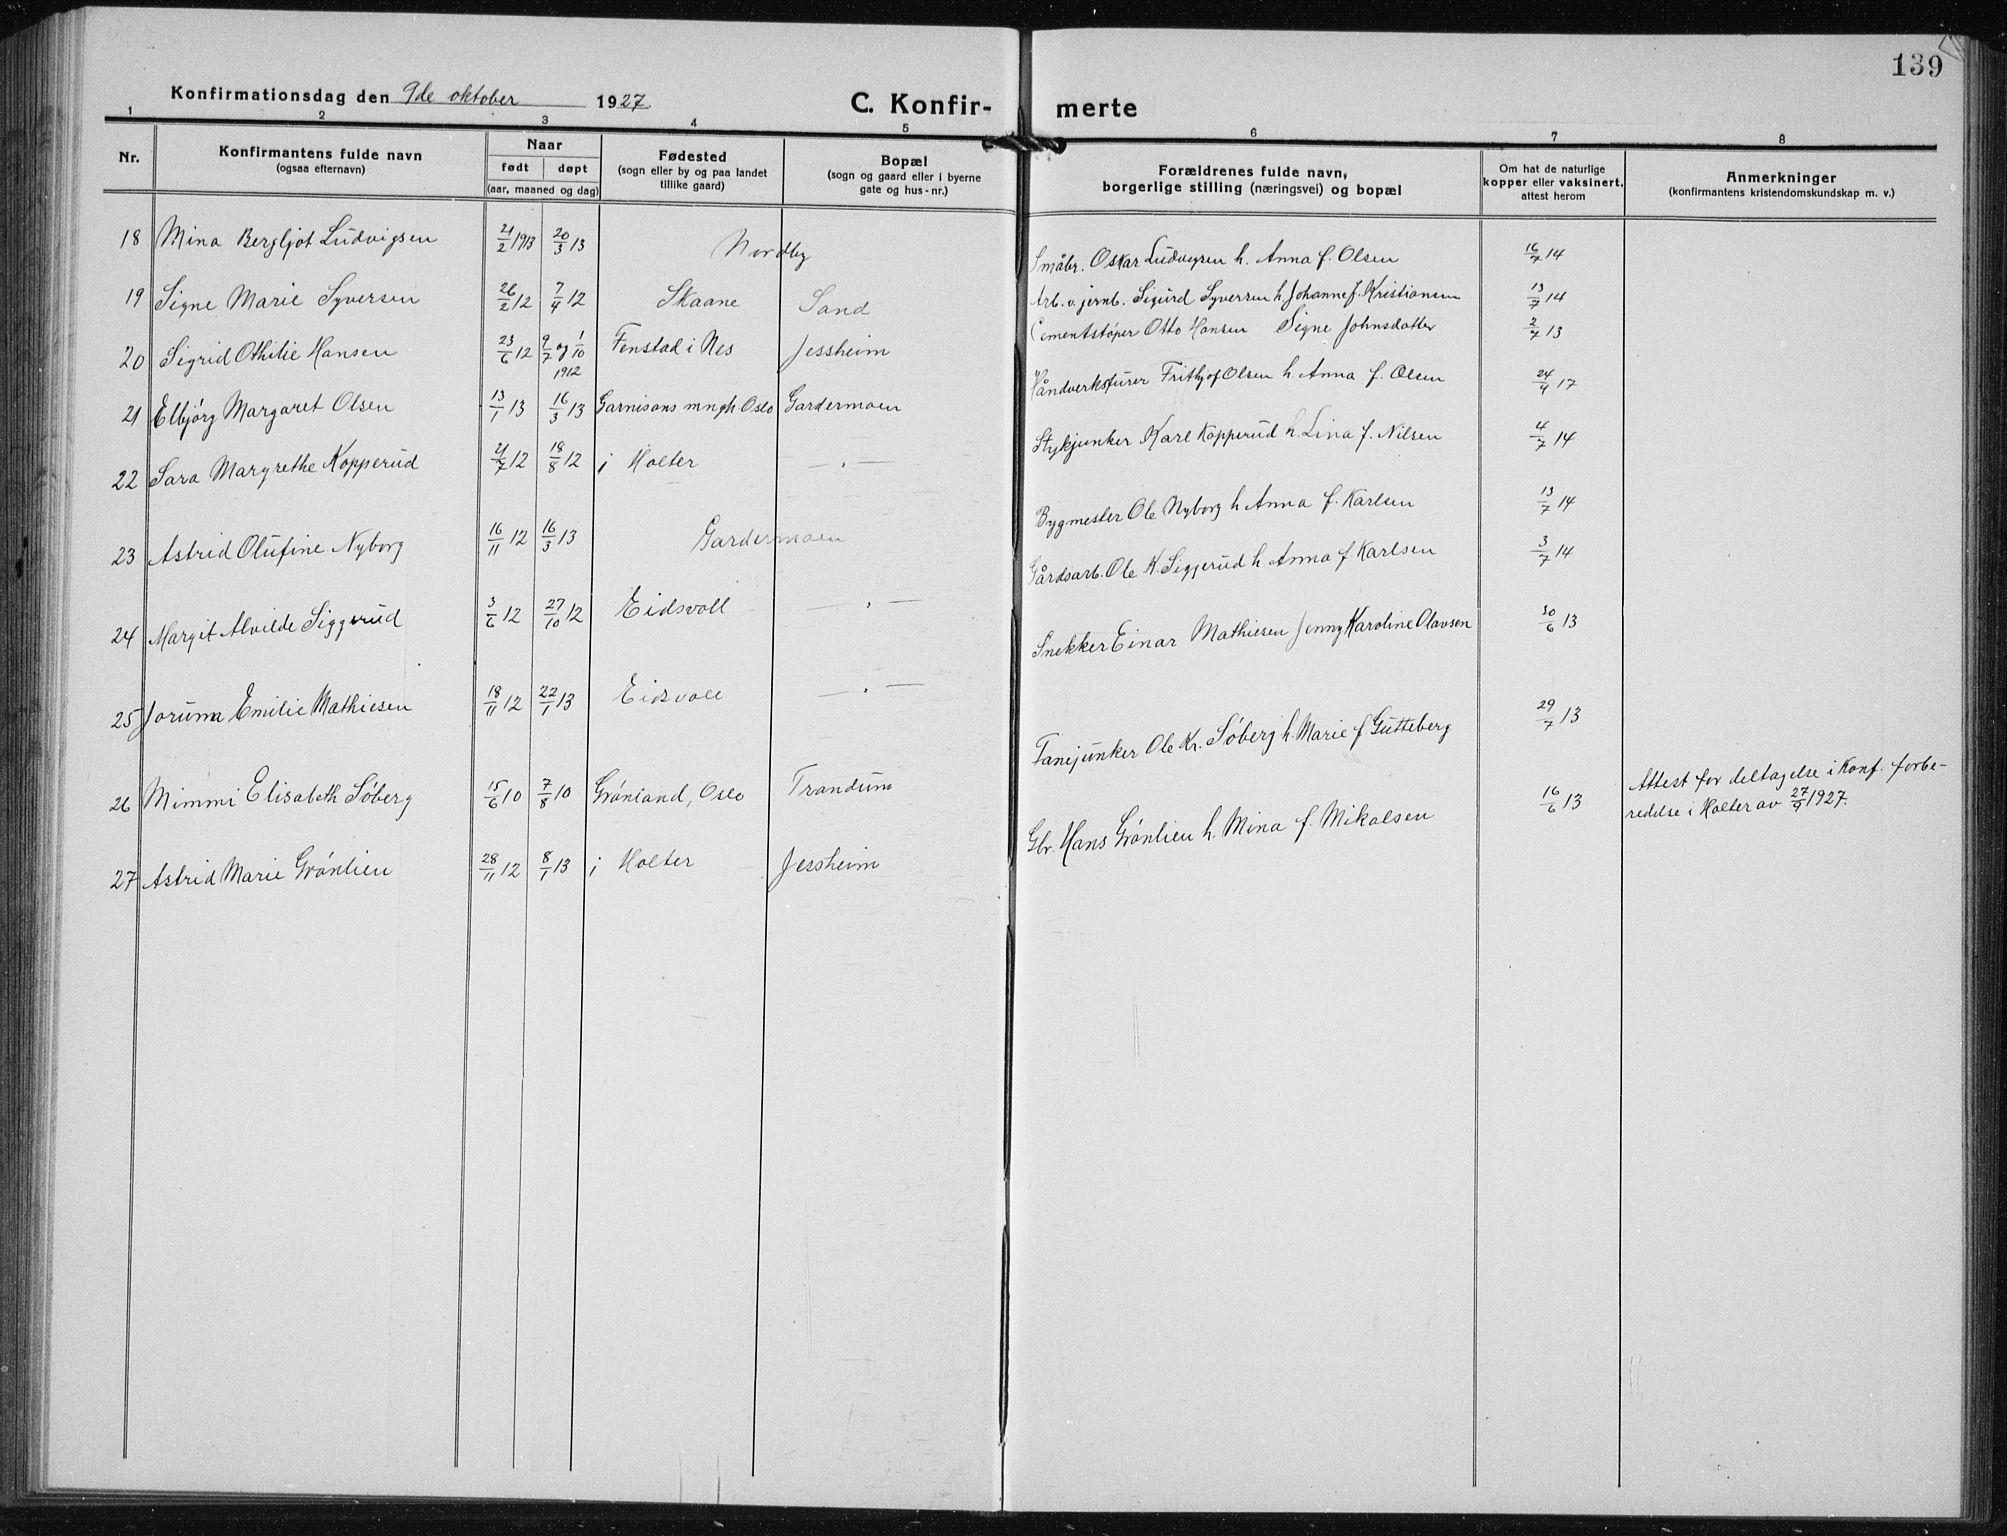 139
Konfirmationsdag den 9de oktober 1927
C. Konfir-
merte
1 2 3 4 5 6 7 8
Nr.
Konfirmantens fulde navn
(ogsaa efternavn)
Naar
født døpt
(aar, maaned og dag)
Fødested
(sogn eller by og paa landet
tillike gaard)
Bopæl
(sogn og gaard eller i byerne
gate og hus-nr.)
Forældrenes fulde navn,
borgerlige stilling (næringsvei) og bopæl
Om hat de naturlige
kopper eller vaksinert,
attest herom
Anmerkninger
(konfirmantens kristendomskundskap m. v.)
18 Mina Bergljot Ludvigsen 21/2 1913 20/3 13 Nordby Småbr. Oskar Ludvigsen h. Anna f. Olsen 16/7 14
19 Signe Marie Syversen 26/2 12 7/4 12 Skaane Sand Arb. v. jernb. Sigurd Syversen h. Johanne f. Kristiansen 13/7 14
20 Sigrid Othilie Hansen 23/6 12 9/7 og 1/10 1912 Fenstad i Nes Jessheim Cementstøper Otto Hansen Signe Johnsdatter 2/7 13
21 Elbjørg Margaret Olsen 13/1 13 16/3 13 Garnisons mngh. Oslo Gardermoen Håndverksfurer Frithjof Olsen h. Anna f. Olsen 24/4 17
22 Sara Margrethe Kopperud 21/7 12 18/8 12 i Holter — " — Stykjunker Karl Kopperud h. Lina f. Nilsen 4/7 14
23 Astrid Olufine Nyborg 16/11 12 16/3 13 Gardermoen Bygmester Ole Nyborg h. Anna f. Karlsen 13/7 14
24 Margit Alvilde Siggerud 3/6 12 27/10 12 Eidsvoll — " — Gårdsarb. Ole K. Siggerud h. Anna f. Karlsen 3/7 14
25 Jorunn Emilie Mathiesen 18/11 12 22/1 13 Eidsvoll — " — Snekker Einar Mathiesen Jenny Karoline Olavsen 30/6 13
26 Mimmi Elisabeth Søberg 15/6 10 7/8 10 Grønland, Oslo Trandum Fanejunker Ole Kr. Søberg h. Marie f. Gutteberg 29/7 13 Attest for deltagelse i Konf. forbe-
redelse i Holter av 27/9 1927.
27 Astrid Marie Grønlien 28/11 12 8/1 13 i Holter Jessheim Gbr. Hans Grønlien h. Mina f. Mikalsen 16/6 13